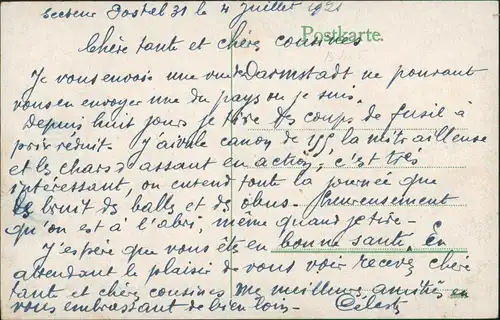 Secteur Postal 31 le 4 Juillet 1921
Postkarte.
Chère tante et chères cousines
Je vous envoie une vue de Darmstadt ne pouvant
vous en envoyer une du pays ou je suis.
Depuis huit jours je tire des coups de fusil à
prix réduit. J'ai vu le canon de 155, la mitrailleuse
et les chars d'assaut en action; c'est très
intéressant, on entend toute la journée que
le bruit des balles et des obus. Heureusement
qu'on est à l'abri, même quand je tire-
J'espère que vous êtes en bonne santé. En
attendant le plaisir de vous voir recevez chère
tante et chères cousines me meilleurs amitiés en
vous embrassant de bien loin- Céleste